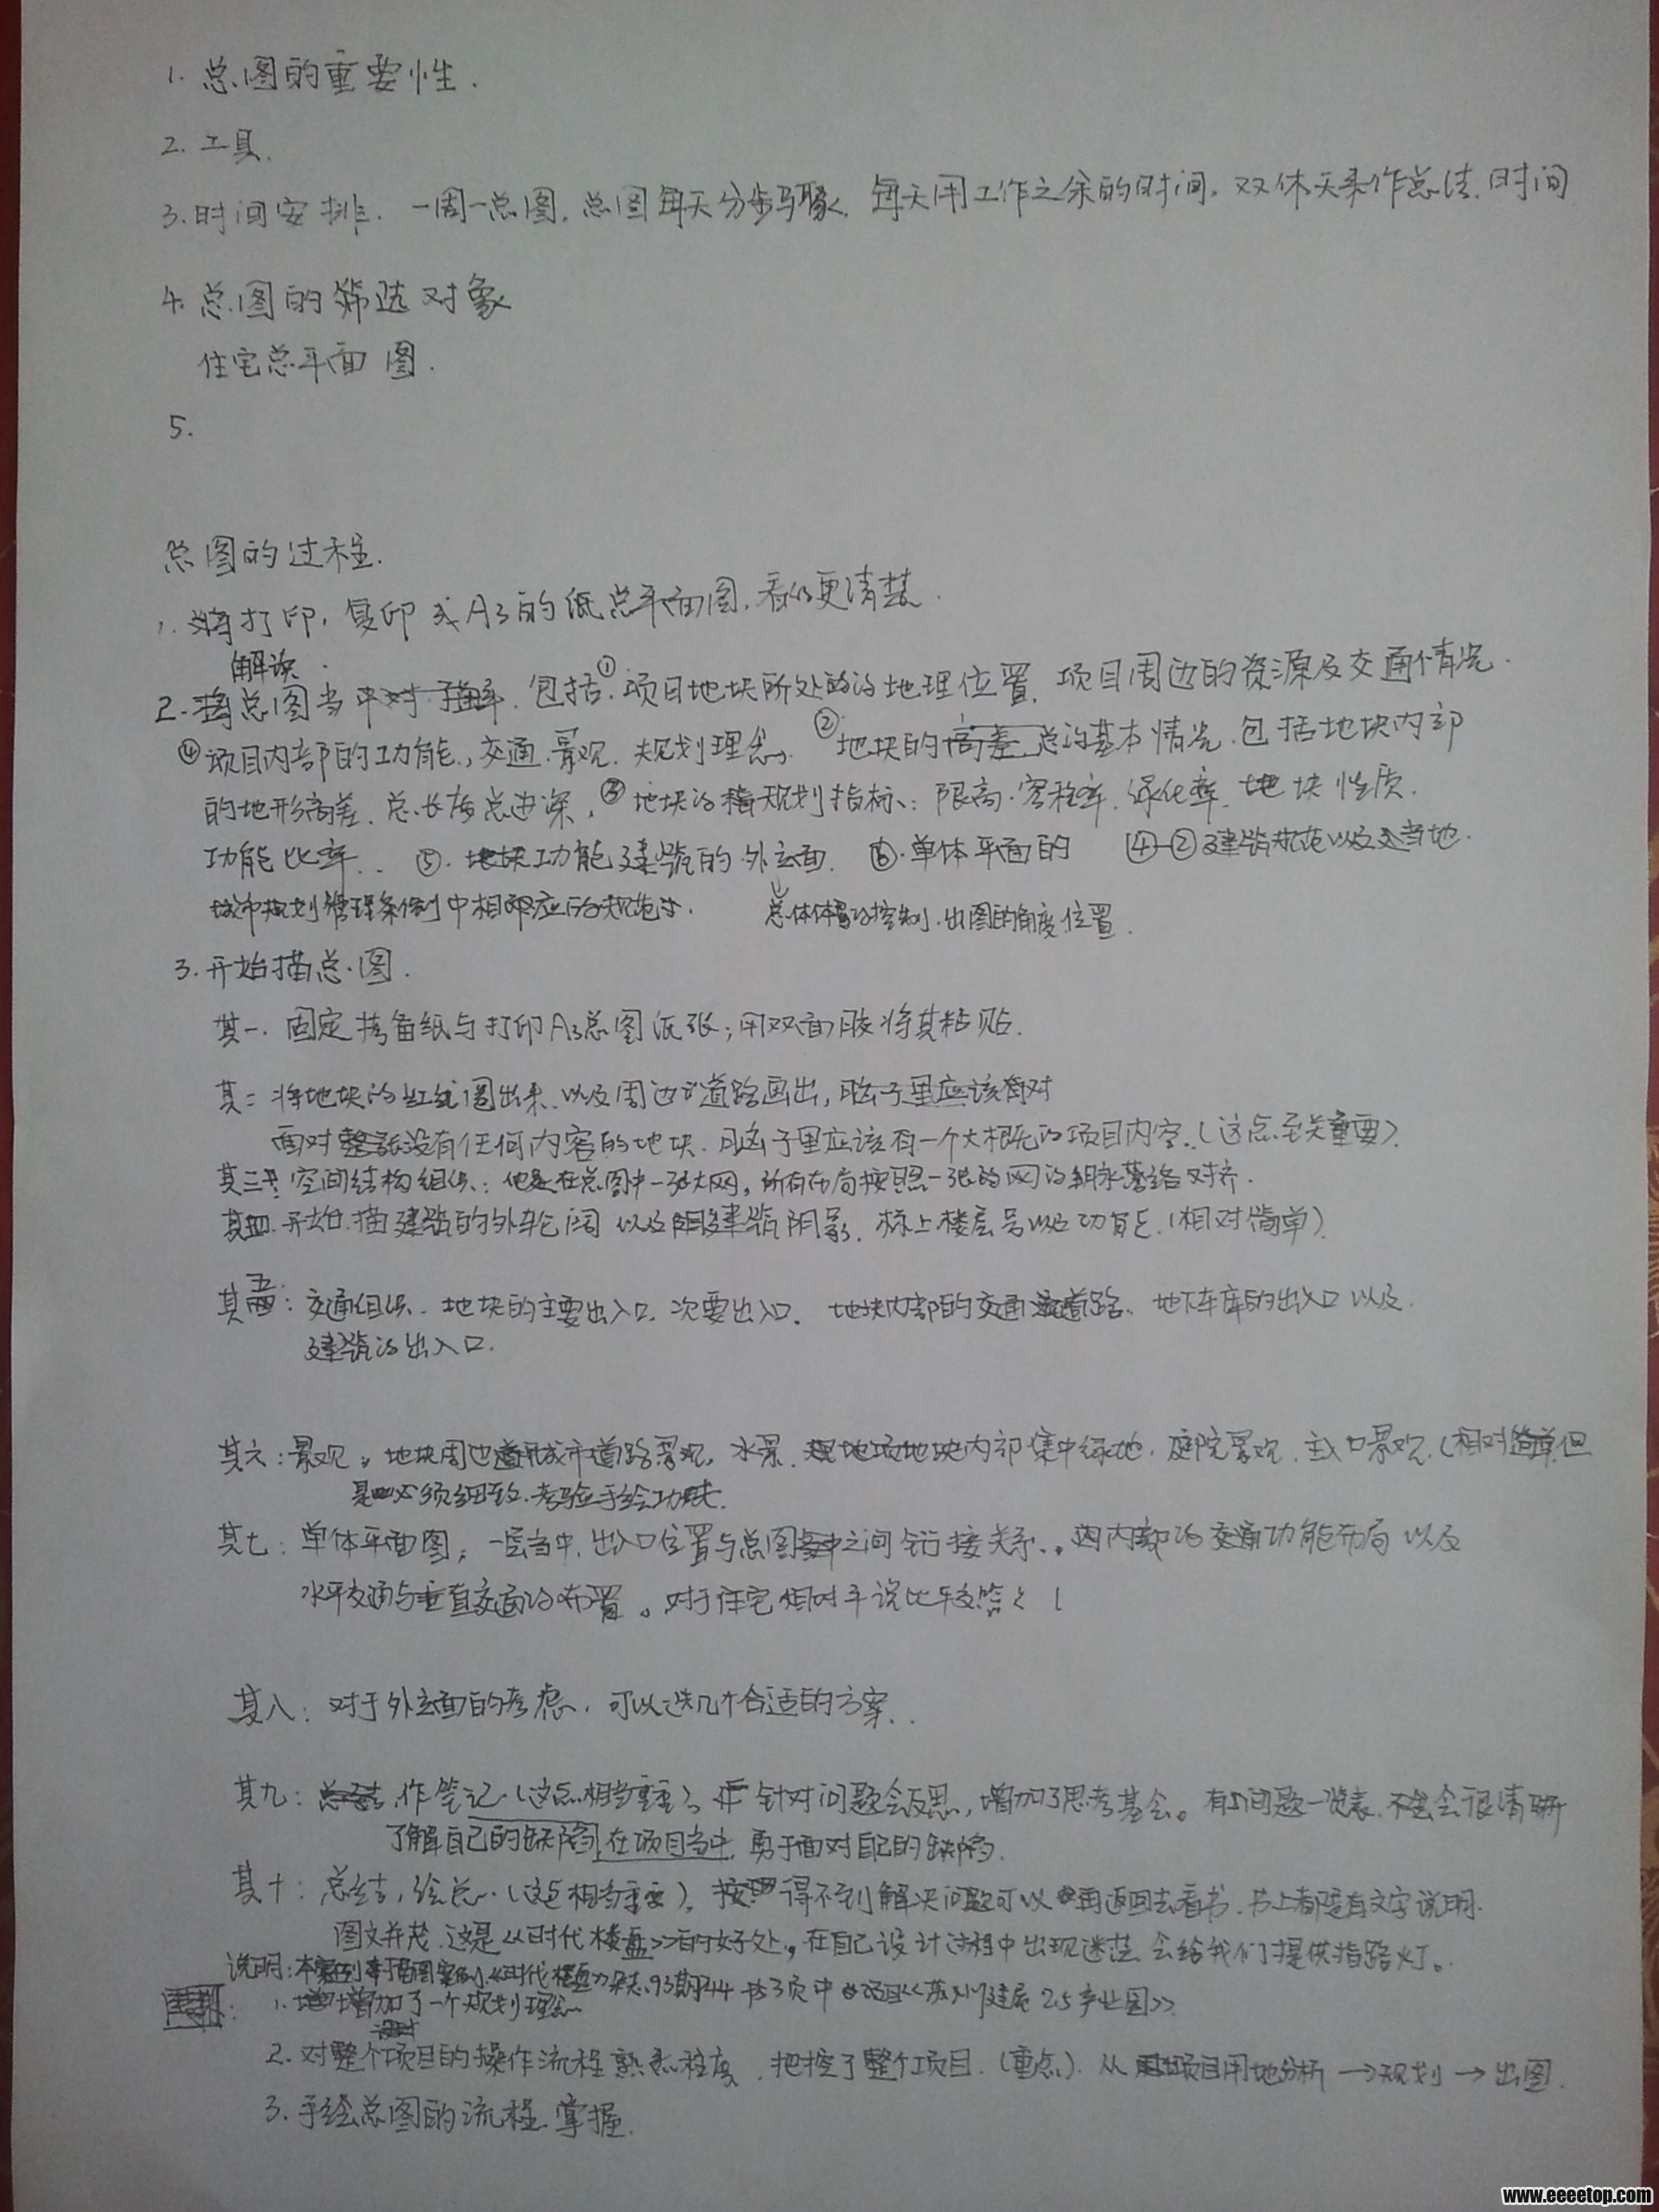 1. 总图的重要性.
2. 工具.
3. 时间安排. 一周一总图, 总图每天分步骤, 每天用工作之余的时间, 双休天来作总结. 时间
4. 总图的筛选对象
住宅总平面图.
5.
总图的过程.
1. 打印, 复印 A3的 总平面图, 看的更清楚.
解读
2. 总图当中 包括 ① 项目地块所处的地理位置, 项目周边的资源及交通情况.
④ 项目内部的功能, 交通, 景观, 规划理念, ② 地块的 基本情况 包括地块内部
的地形高差, 总长度总进深, ③ 地块的 规划指标: 限高, 容积率, 绿化率, 地块性质.
功能比率.. ⑤. 功能建筑的外立面. ⑥. 单体平面的 ④-② 建筑规范以及 当地.
城市规划管理条例中相应的规范. 总体体量的控制, 出图的角度位置.
3. 开始描总图.
其一. 固定 纸与打印A3总图纸张; 用双面胶将其粘贴.
其二 将地块的红线圈出来, 以及周边的道路画出, 脑子里应该
面对 没有任何内容的地块, 脑子里应该有一个大概的项目内容.(这点至关重要).
其三 空间结构组织: 在总图中一张大网, 所有布局按照一张的网的 对齐.
其四. 开始描建筑的外轮阔 以及 建筑阴影, 标上楼层号以及功能.(相对简单).
其五: 交通组织. 地块的主要出入口, 次要出入口. 地块内部的交通道路. 地下车库的出入口 以及
建筑的出入口.
其六: 景观; 地块周边 城市道路景观, 水景, 地块内部集中绿地, 庭院景观, 主入口景观.(相对简单, 但
是必须细致, 考验手绘功夫.
其七: 单体平面图; 一层当中, 出入口位置与总图之间 衔接关系. 内部的交通功能布局 以及
水平交通与垂直交通的布置. 对于住宅相对来说比较简
其八: 对于外立面的考虑, 可以选几个合适的方案..
其九: 作笔记.(这点相当重要). 针对问题会反思, 增加了思考 。有了问题一览表, 会很清晰
了解自己的缺陷 在项目当中, 勇于面对自己的缺陷.
其十: 总结, (这点相当重要). 得不到解决问题可以 再返回去看书, 书上都是有文字说明.
图文并茂. 这是《时代楼盘》的好处, 在自己设计过程中出现迷茫 会给我们提供指路灯。
说明: 《时代楼盘》杂志, 93期 页中 项目《苏州建屋2.5产业园》
1. 增加了一个规划理念
2. 对整个项目的操作流程熟悉程度, 把控了整个项目.(重点). 从 项目用地分析 → 规划 → 出图.
3. 手绘总图的流程掌握.
www.eeeetop.com